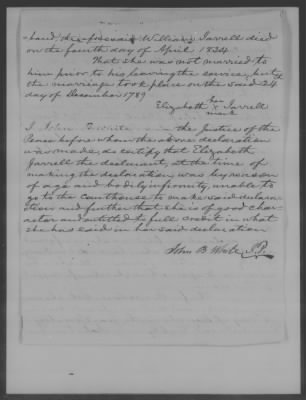 -band, the aforesaid William Jarrell died
on the fourth day of April 1834
That she was not married to
him prior to his leaving the service, but
the marriage took place on the said 24
day of December 1789
her
Elizabeth X Jarrell
mark
I John B White the Justice of the
Peace before whom the above declaration
was made, do certify that Elizabeth
Jarrell the declarant, at the time of
making the declaration, was by reason
of age and bodily infirmity, unable to
go to the Courthouse to make said declara-
tion and further that she is of good char-
acter and entitled to full credit in what
she has said in her said declaration
John B White J.P.